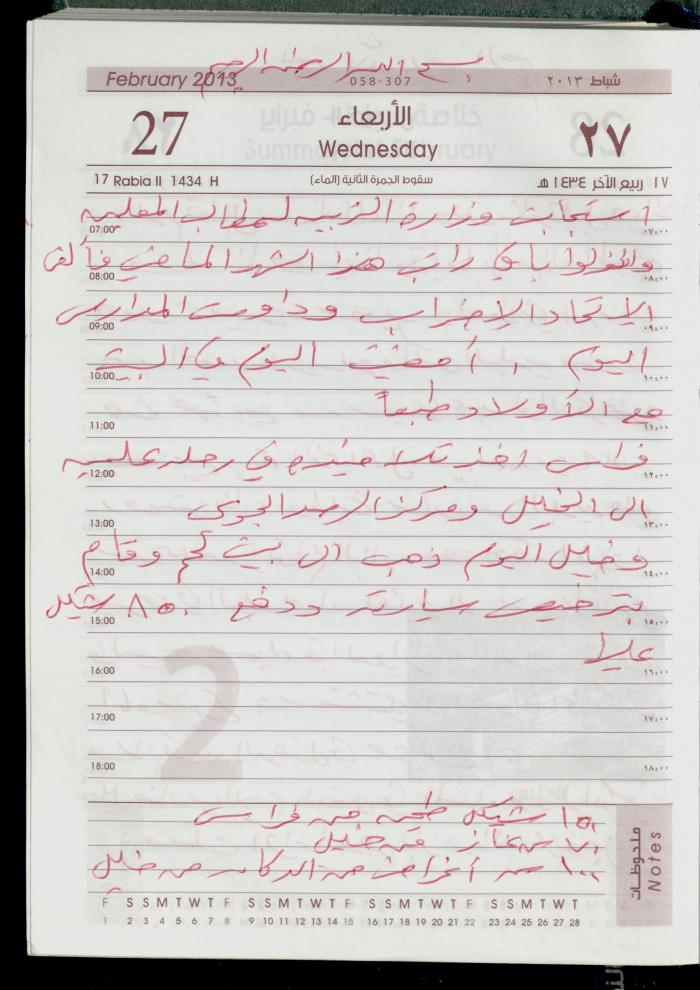 بسم الله الرحمن الرحيم
February 2013
058-307
شباط ٢٠١٣
27
الأربعاء
Wednesday
٢٧
17 Rabia II 1434 H
سقوط الجمرة الثانية (الماء)
١٧ ربيع الآخر ١٤٣٤ هـ
استجابت وزارة التربية لمطالب المعلمين
07:00 ٠٧،٠٠
باقي راتب هذا الشهر الماضي
08:00 ٠٨،٠٠
الاتحاد الإضراب وداومت المدارس
09:00 ٠٩،٠٠
اليوم ، أمضيت اليوم في البيت
10:00 ١٠،٠٠
مع الأولاد طبعاً
11:00 ١١،٠٠
فراس أخذ تلاميذه في رحلة علمية
12:00 ١٢،٠٠
الى الخليل ومركز الرصد الجوي
13:00 ١٣،٠٠
وخليل اليوم ذهب الى بيت لحم وقام
14:00 ١٤،٠٠
بترخيص سيارته ودفع ٨٥٠ شيكل
15:00 ١٥،٠٠
16:00 ١٦،٠٠
17:00 ١٧،٠٠
18:00 ١٨،٠٠
2
١٥٠ شيكل من فراس
٧٠ غاز من خليل
١٠٠ أغراض من الدكان من خليل
ملاحظات
Notes
F S S M T W T F S S M T W T F S S M T W T F S S M T W T
1 2 3 4 5 6 7 8 9 10 11 12 13 14 15 16 17 18 19 20 21 22 23 24 25 26 27 28